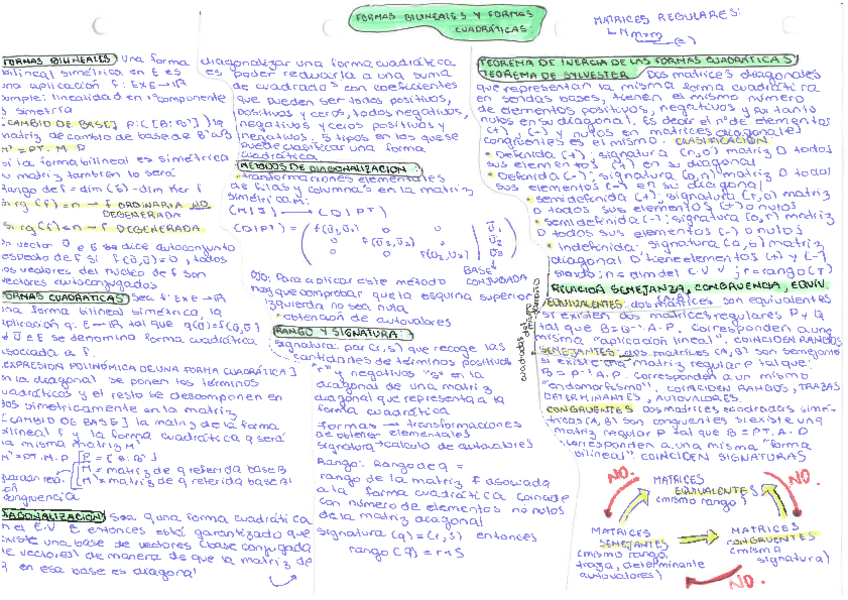 FORMAS BILINEALES Y FORMAS
CUADRÁTICAS
MATRICES REGULARES:
FORMAS BILINEALES Una forma
bilineal simétrica en E es
una aplicación f: E×E→R
simple: linealidad en 1ª componente
y simetría
[CAMBIO DE BASE] P: ([B:B'])
matriz de cambio de base de B' a B
M' = PT. M. P
Si la forma bilineal es simétrica
su matriz también lo será
Rango de f = dim (E) - dim Ker f
Si rg (f) = n → f ORDINARIA NO
DEGENERADA
Si rg (f) = n → f DEGENERADA
Un vector u e E se dice autoconjunto
respecto de f si f(u,u)=0, todos
los vectores del núcleo de f son
vectores autoconjugados
FORMAS CUADRÁTICAS Sea f: E×E→R
una forma bilineal simétrica, la
aplicación q: E→R tal que q(u)=f(u,u)
∀ u∈E se denomina forma cuadrática
asociada a f.
[EXPRESIÓN POLINÓMICA DE UNA FORMA CUADRÁTICA]
En la diagonal se ponen los términos
cuadráticos y el resto se descomponen en
dos simétricamente en la matriz
[CAMBIO DE BASE] la matriz de la forma
bilineal f y la forma cuadrática q será
la misma matriz M
M' = PT. M. P P = [B:B']
M = matriz de q referida base B
M' = matriz de q referida base B'
congruencia
DIAGONALIZACIÓN Sea q una forma cuadrática
en el E.V E entonces está garantizado que
existe una base de vectores (base conjugada
de vectores) de manera de que la matriz de
q en esa base es diagonal
diagonalizar una forma cuadrática
es poder reducirla a una suma
de cuadrados con coeficientes
que pueden ser todos positivos,
positivos y ceros, todos negativos,
negativos y ceros, positivos y
negativos. 5 tipos en los que se
puede clasificar una forma
cuadrática.
MÉTODOS DE DIAGONALIZACIÓN:
• transformaciones elementales
de filas y columnas en la matriz
simétrica:
(M|I) → (D|PT)
(D|PT) = f(u1,u1) 0 0 u1
0 f(u2,u2) 0 u2
0 0 f(u3,u3) u3
BASE
CONJUGADA
OJO: Para aplicar este método
hay que comprobar que la esquina superior
izquierda no sea nula
• obtención de autovalores
RANGO Y SIGNATURA:
Signatura: par (r,s) que recoge las
cantidades de términos positivos
"r" y negativos "s" en la
diagonal de una matriz
diagonal que representa a la
forma cuadrática
formas → transformaciones
de obtener elementales
signatura → cálculo de autovalores
Rango: Rango de q =
rango de la matriz f asociada
a la forma cuadrática. Coincide
con número de elementos no nulos
de la matriz diagonal
signatura (q) = (r,s) entonces
rango (q) = r+s
TEOREMA DE INERCIA DE LAS FORMAS CUADRÁTICAS
TEOREMA DE SYLVESTER Dos matrices diagonales
que representan la misma forma cuadrática
en sendas bases, tienen el mismo número
de elementos positivos, negativos y por tanto
nulos en su diagonal. Es decir el nº de elementos
(+), (-) y nulos en matrices diagonales
congruentes es el mismo. CLASIFICACIÓN
• Definida (+): signatura (n,0) matriz D todos
sus elementos (+) en su diagonal
• Definida (-): signatura (0,n) matriz D todos
sus elementos (-) en su diagonal
• semidefinida (+): signatura (r,0) matriz
D todos sus elementos (+) o nulos
• semidefinida (-): signatura (0,r) matriz
D todos sus elementos (-) o nulos
• Indefinida: signatura (a,b) matriz
diagonal D tiene elementos (+) y (-)
siendo: n = dim del E.V V; r = rango(T)
RELACIÓN SEMEJANZA, CONGRUENCIA, EQUIV.
EQUIVALENTES: dos matrices son equivalentes
si existen dos matrices regulares P y Q
tal que B = Q-1.A.P. Corresponden a una
misma "aplicación lineal". COINCIDEN RANGOS
SEMEJANTES: dos matrices (A,B) son semejantes
si existe una matriz regular P tal que:
B = P-1.A.P. Corresponden a un mismo
"endomorfismo". COINCIDEN RANGOS, TRAZAS
DETERMINANTES, AUTOVALORES.
CONGRUENTES Dos matrices cuadradas simé-
tricas (A,B) son congruentes si existe una
matriz regular P tal que B = PT.A.P
Corresponden a una misma "forma
bilineal". COINCIDEN SIGNATURAS
NO.
MATRICES
EQUIVALENTES
(mismo rango)
NO.
MATRICES
SEMEJANTES
(mismo rango,
traza, determinante
autovalores)
MATRICES
CONGRUENTES
(misma
signatura)
NO.